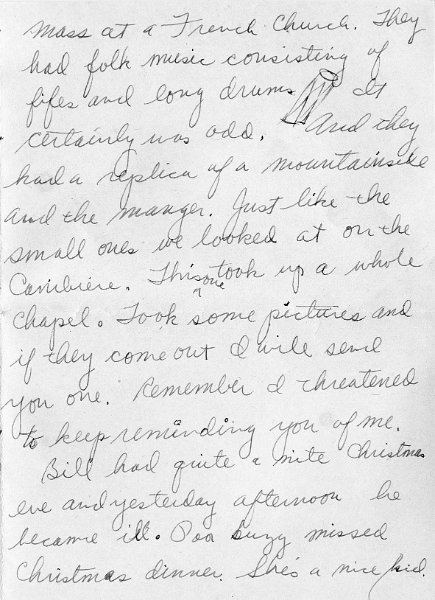 mass at a French Church. They
had folk music consisting of
fifes and long drums It
certainly was odd. And they
had a replica of a mountainside
and the manger. Just like the
small ones we looked at on the
Canibiere. This one took up a whole
chapel. Took some pictures and
if they come out I will send
you one. Remember I threatened
to keep reminding you of me.
Bill had quite a nite Christmas
eve and yesterday afternoon he
became ill. Poo Suzy missed
Christmas dinner. She's a nice kid.